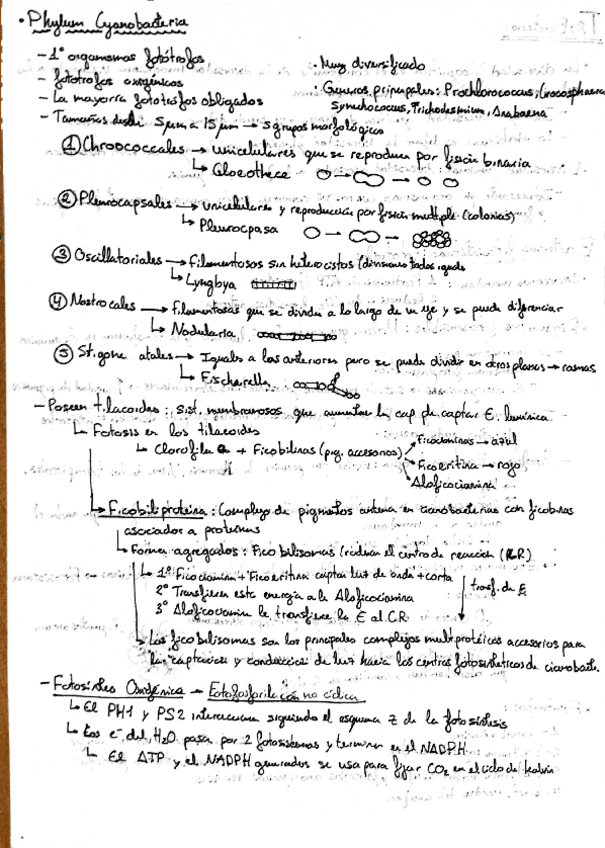 · Phylum Cyanobacteria
- 1º organismos fotótrofos
- fototrofos oxigénicos
- La mayoría fototrofos obligados
- Tamaños desde 5µm a 15µm → 5 grupos morfológicos
· Muy diversificado
· Géneros principales: Prochlorococcus, Crocosphaera
Synechococcus, Trichodesmium, Anabaena
① Chroococcales → unicelulares que se reproducen por fisión binaria
↳ Gloeothece
② Pleurocapsales → unicelulares y reproducción por fisión múltiple (colonias)
↳ Pleurocpasa
③ Oscillatoriales → filamentosos sin heterocistos (divisiones todas iguales
↳ Lyngbya
④ Nostrocales → filamentosas que se dividen a lo largo de un eje y se puede diferenciar
↳ Nodularia
⑤ Stigone atales → Iguales a las anteriores pero se puede dividir en otros planos → ramas
↳ Fischerella
- Poseen tilacoides: sist. membranosos que aumentan la cap de captar E. lumínica
↳ Fotosis en los tilacoides
↳ Clorofila a + Ficobilinas (pig. accesorios)
Ficocianinas → azul
Ficoeritina → rojo
Aloficocianina
↳ Ficobiliproteina: Complejo de pigmentos antena en cianobacterias con ficobilinas
asociados a proteínas
↳ Forman agregados: Ficobilisomas (rodean el centro de reacción (CR)
↳ 1º Ficocianina + Ficoeritina captan luz de onda + corta
2º Transfieren esta energía a la Aloficocianina
3º Aloficocianina le transfiere la E al C.R.
trasf. de E
↳ Los ficobilisomas son los principales complejos multiprotéicos accesorios para
la captación y conducción de luz hacia los centros fotosintéticos de cianobact.
- Fotosíntesis Oxigénica → Fotofosforilación no cíclica
↳ El PH1 y PS2 interaccionan siguiendo el esquema Z de la fotosíntesis
↳ Los e⁻ del H₂O pasan por 2 fotosistemas y terminan en el NADPH
↳ El ATP y el NADPH generados se usa para fijar CO₂ en el ciclo de Kalvin